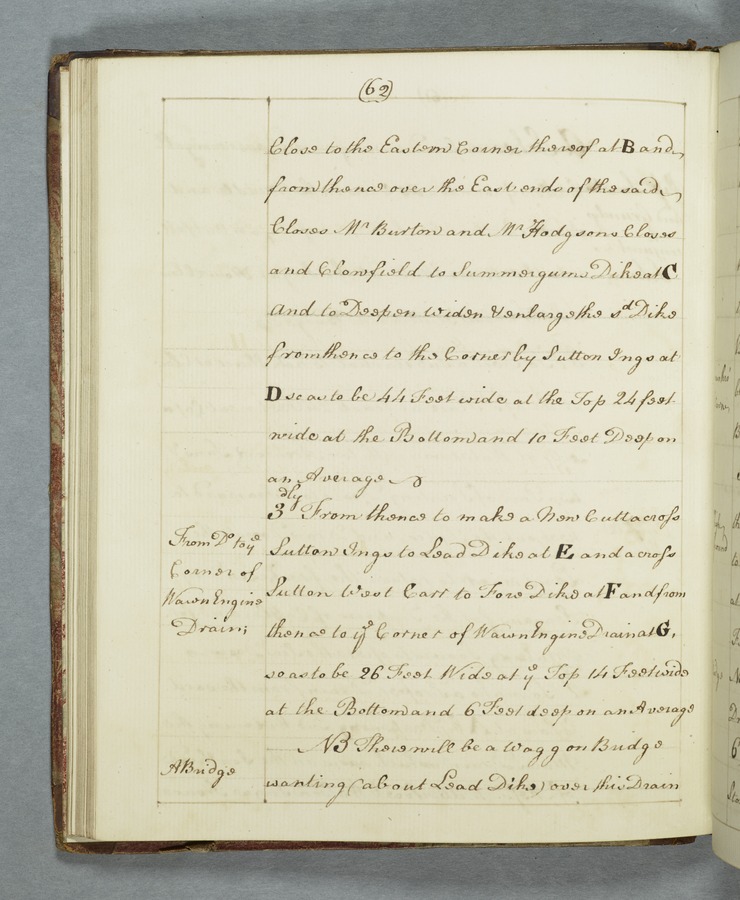 (62)
Close to the Eastern Corner thereof at B and
from thence over the East ends of the said
Closes Mr Burton and Mr Hodgsons Closes
and Clowfield to Summergums Dike at C
And to Deepen Widen & enlarge the sd Dike
from thence to the Corner by Sutton Ings at
D so as to be 44 Feet wide at the Top 24 feet
wide at the Bottom and 10 Feet Deep on
an Average
3dly From thence to make a New Cutt across
From Do to ye
Corner of
Wawn Engine
Drain;
Sutton Ings to Lead Dike at E and across
Sutton West Carr to Fore Dike at F and from
thence to ye Corner of Wawn Engine Drain at G,
so as to be 26 Feet Wide at ye Top 14 Feet wide
at the Bottom and 6 Feet deep on an Average
NB There will be a Waggon Bridge
A Bridge
wanting (about Lead Dike) over this Drain